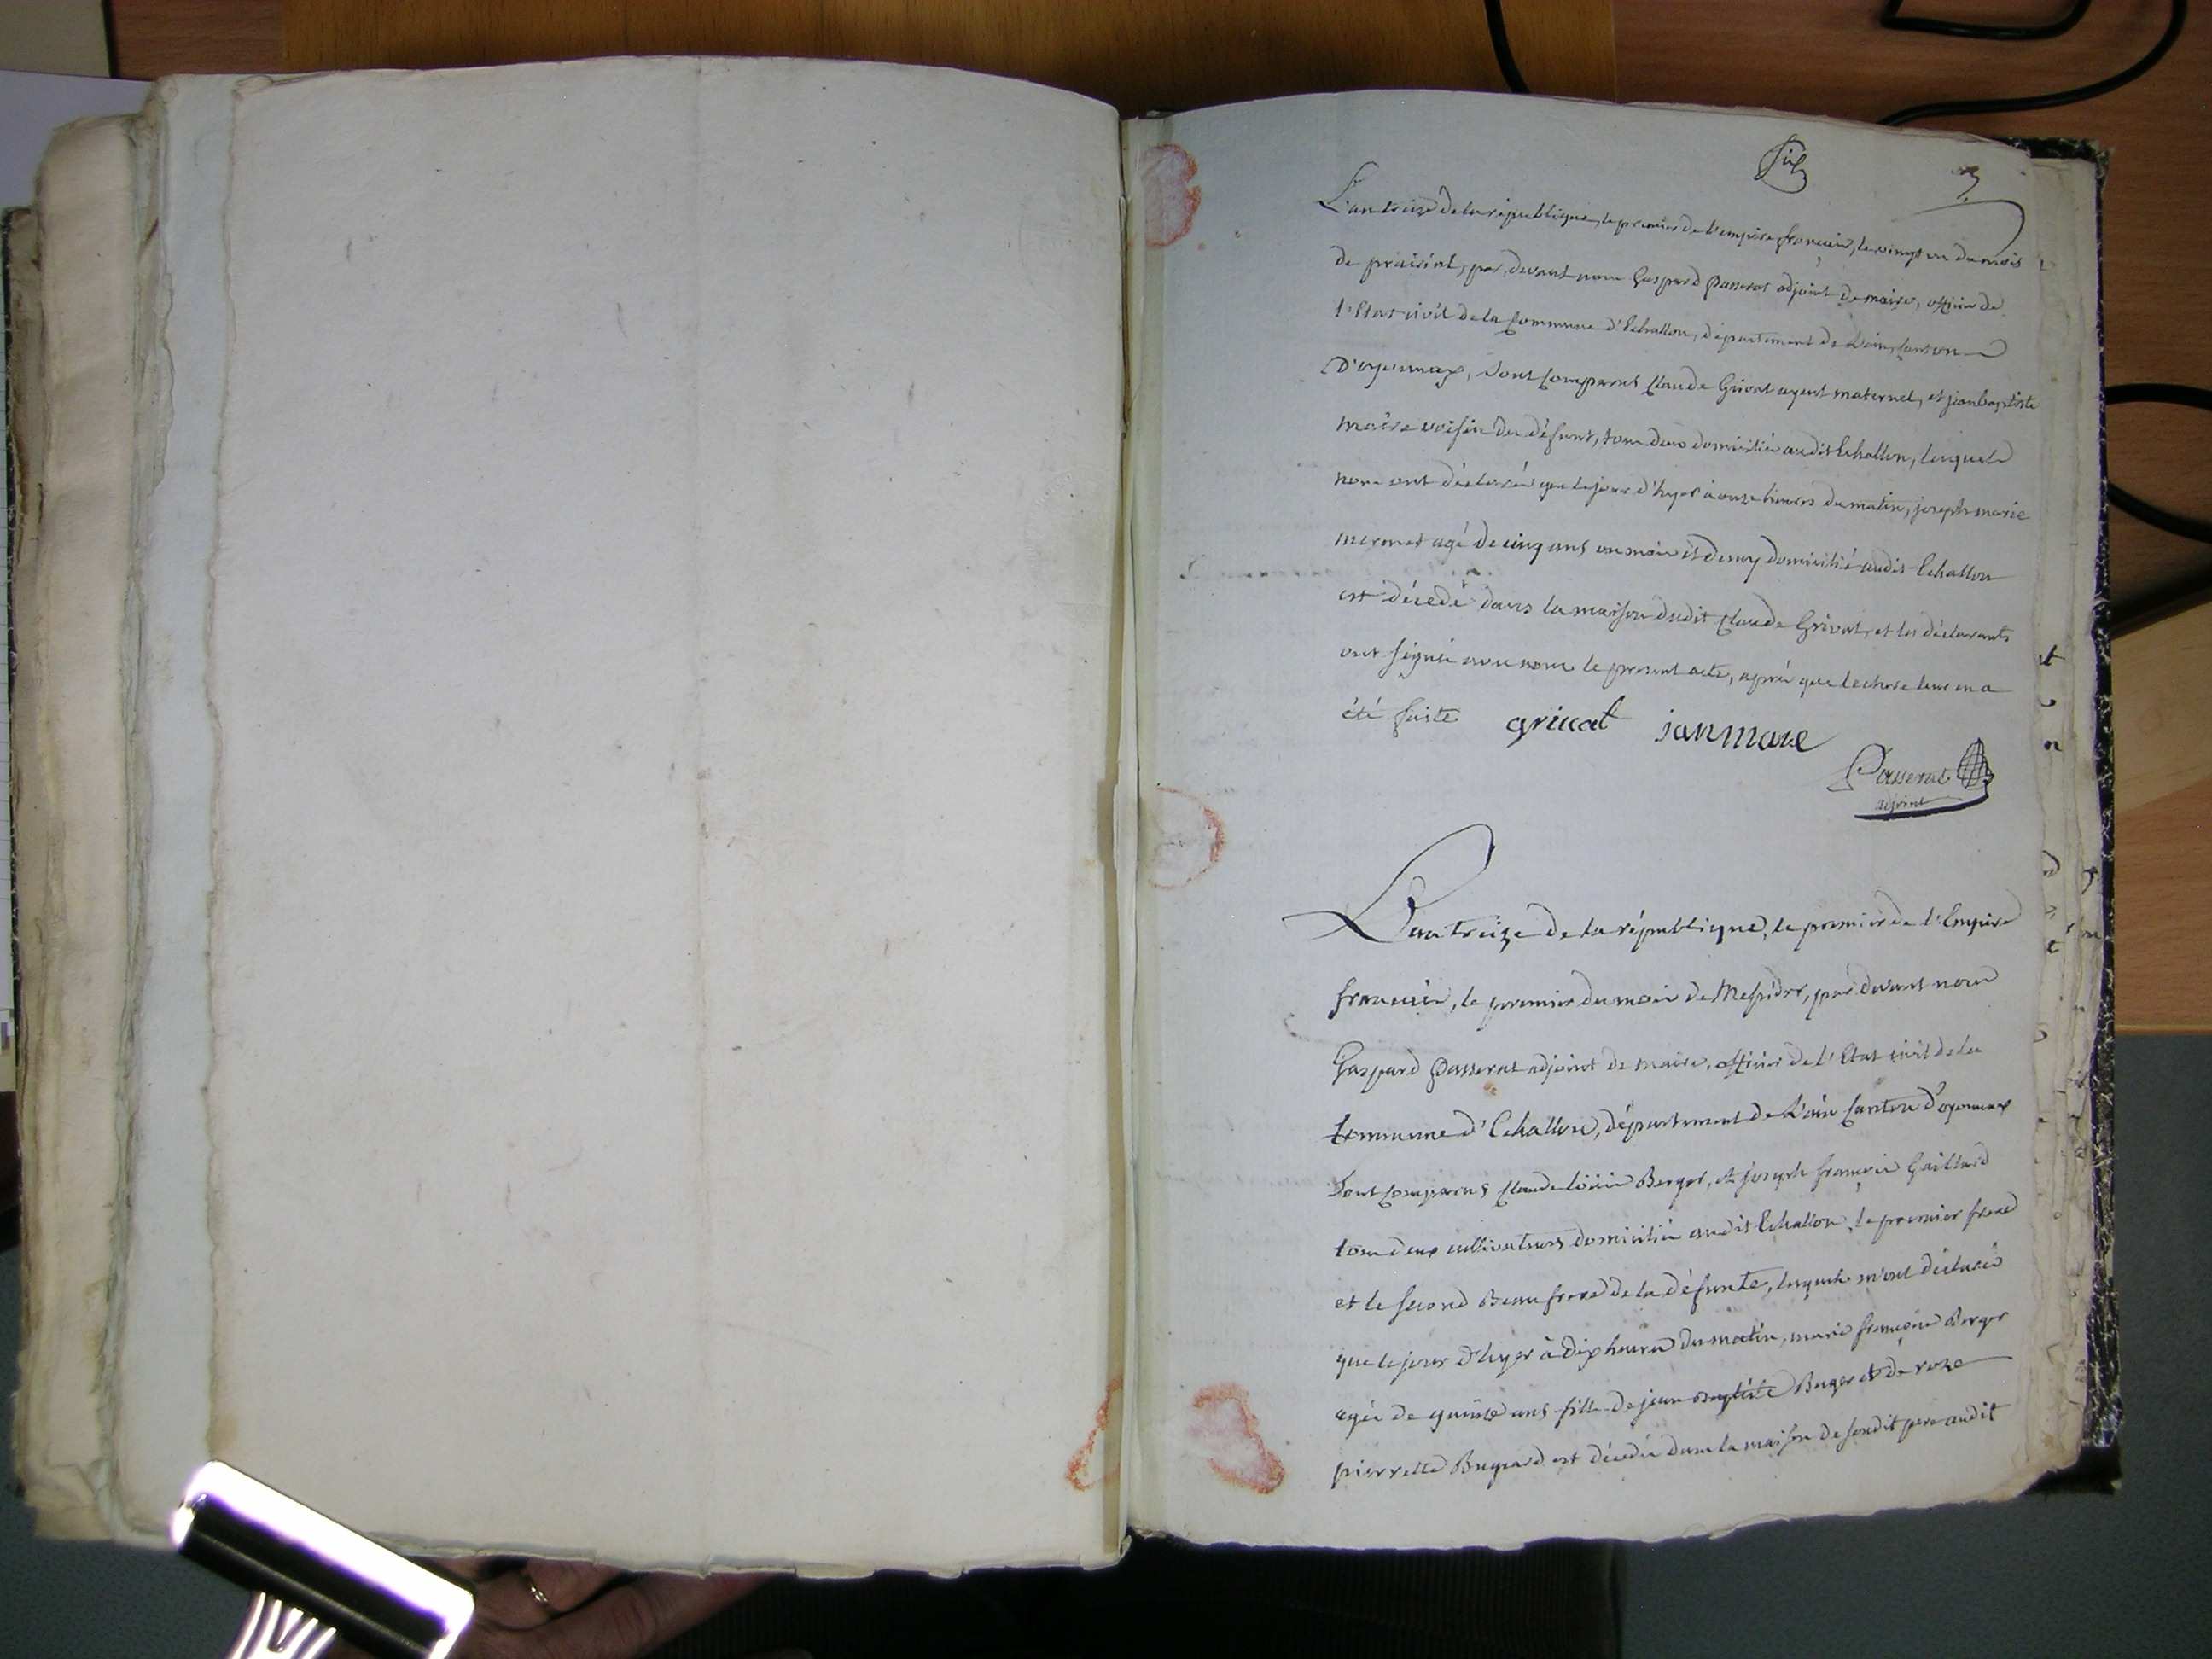 3
L'an treize de la république, le premier de l'empire francais, le vingt un du mois
de prairial, par devant nous Gaspard Passerat adjoint de maire, officier de
l'Etat civil de la Commune d'Echallon, département de L'ain, Canton
D'oyonnax, Sont Comparus Claude Grivat ayeul maternel, et jean baptiste
maire voisin du défunt, tous deux domiciliés audit Echallon, lesquels
nous ont déclarés que le jour d'hyer à onze heures du matin, joseph marie
mermet agé de cinq ans un mois et demy domicilié audit Echallon
est décedé dans la maison dudit Claude Grivat, et les déclarants
ont signés avec nous le present acte, après que lecture leur en a
été faite grivat janmare
Passerat
adjoint
L'an treize de la république, le premier de l'Empire
francais, le premier du mois de Messidor, par devant nous
Gaspard Passerat adjoint de maire, officier de l'Etat civil de la
Commune d'Echallon, département de L'ain Canton d'oyonnax
Sont Comparus Claude Berger, et joseph francois Gaillard
tous deux cultivateurs domiciliés audit Echallon, le premier frere
et le second Beau frere de la défunte, lesquels m'ont déclarés
que le jour d'hyer à dix heures du matin, marie francoise Berger
agée de quinze ans fille de jean Baptiste Berger et de roze
pierrette Bugnard est décedée dans la maison de sondit pere audit